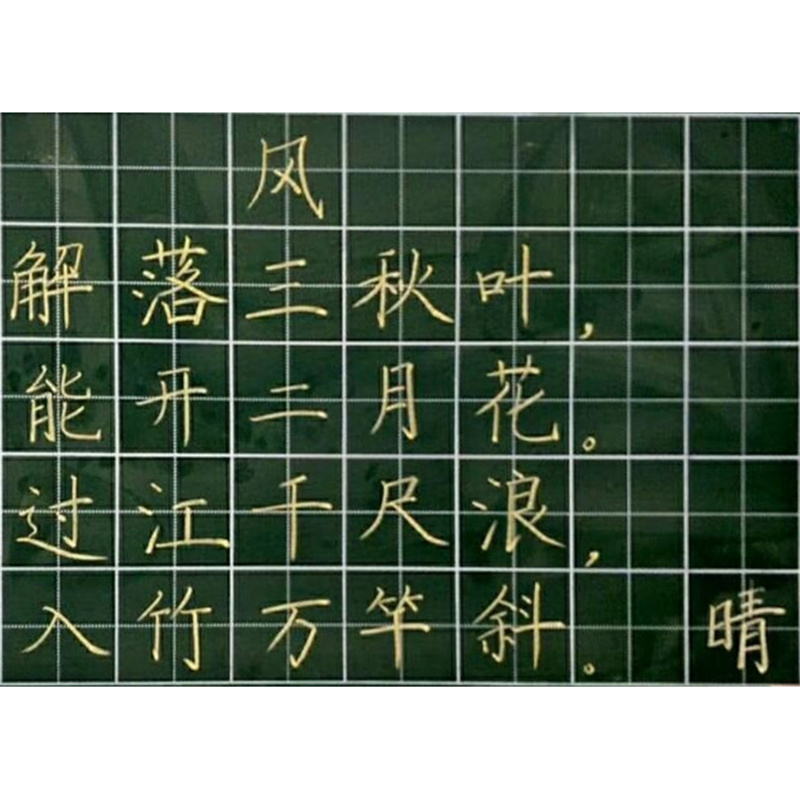 风
解落三秋叶,
能开二月花。
过江千尺浪,
入竹万竿斜。 晴